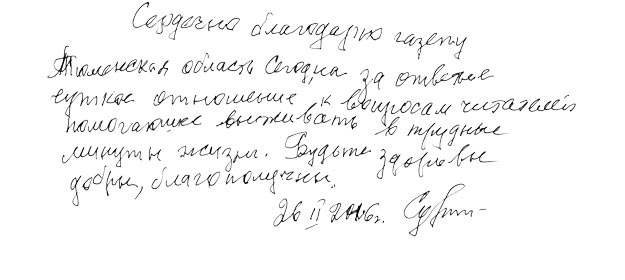 Сердечно благодарю газету
Тюменская область Сегодня за ответное
чуткое отношение к вопросам читателей
помогающее выживать в трудные
минуты жизни. Будьте здоровы
добры, благополучны.
26 II 2006г.